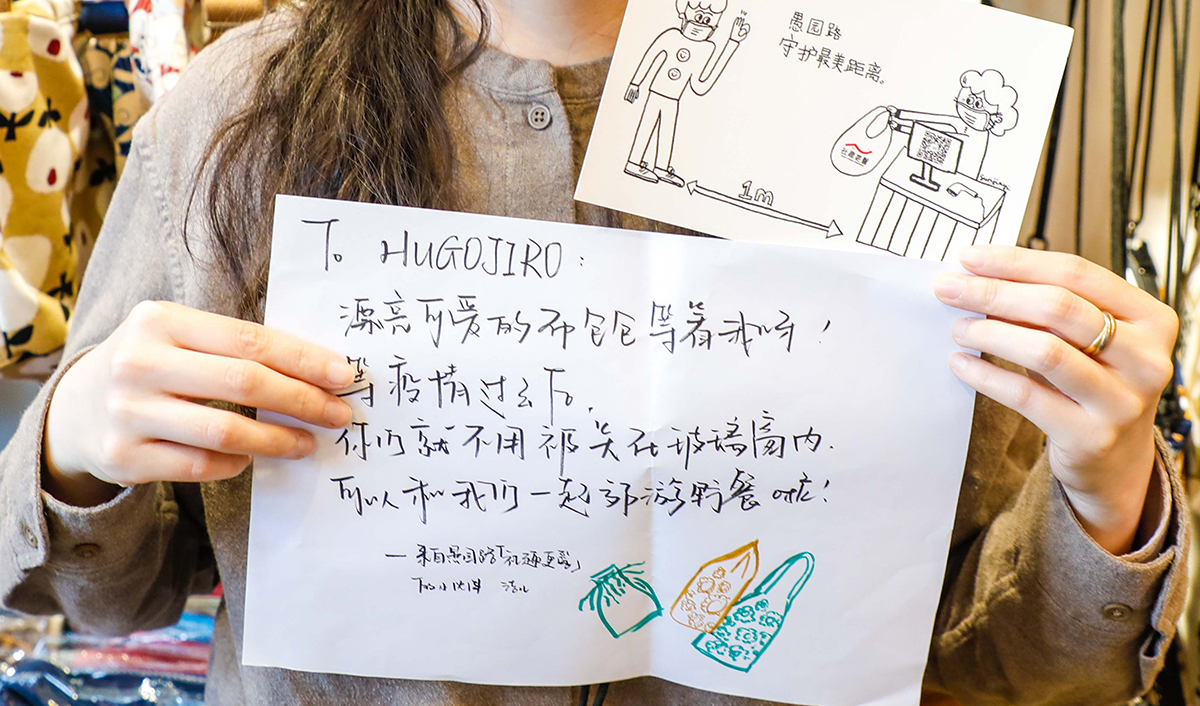 愚园路
守护最美距离。
1m
To HUGOJIRO:
漂亮可爱的布包包等着我呀!
等疫情过去了,
你们就不用被关在玻璃窗内.
可以和我们一起郊游野餐啦!
—来自愚园路「社趣更馨」
的小伙伴